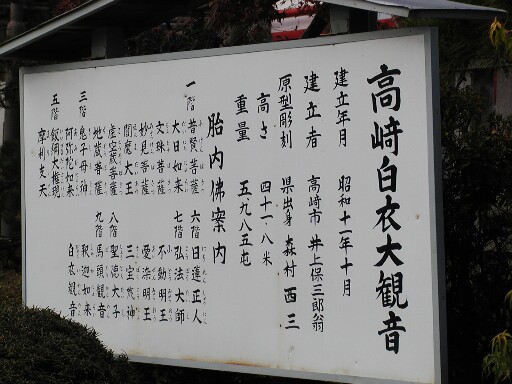 高崎白衣大観音
建立年月 昭和十一年十月
建立者 高崎市 井上保三郎翁
原型彫刻 県出身 森村酉三
高さ 四十一・八米
重量 五九八五屯
胎内佛案内
一階 普賢菩薩 六階 日蓮正人
大日如来 七階 弘法大師
文珠菩薩 不動明王
妙見菩薩 愛染明王
閻魔大王 三宝荒神
虚空蔵菩薩 八階 聖徳太子
地蔵菩薩 九階 馬頭観音
三階 鬼子母神 釈迦如来
阿弥陀如来 白衣観音
五階 飯綱大権現
摩利支天